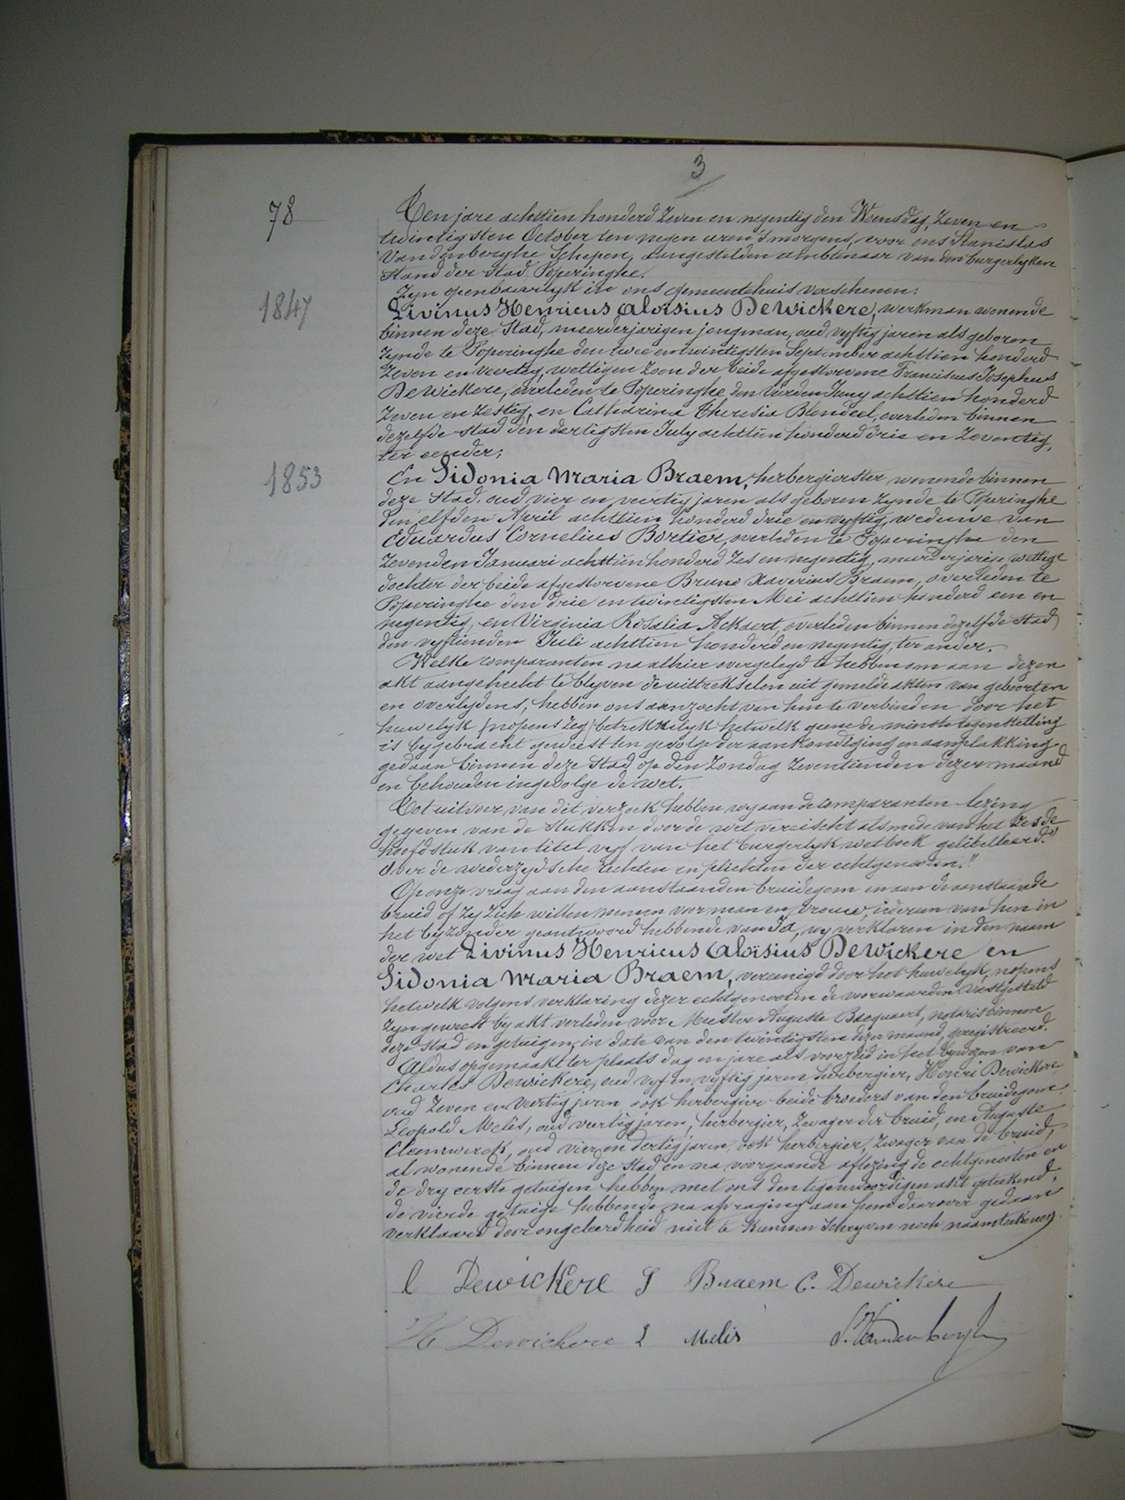 3
78
Ten jare achttien honderd zeven en negentig den Woensdag, zeven en
twintigsten October ten negen uren 's morgens, voor ons Stanislas
Vandenberghe Schepen, aangestelden ambtenaar van den burgerlyken
Stand der Stad Poperinghe.
Zyn openbaarlyk in ons gemeentehuis verschenen:
1847
Livinus Henricus Aloïsius DeWickere, werkman wonende
binnen deze Stad, meerderjarigen jongman, oud vyftig jaren als geboren
zynde te Poperinghe den twee en twintigsten September achttien honderd
zeven en veertig, wettigen zoon der beide afgestorvene Franciscus Josephus
DeWickere, overleden te Poperinghe den Juny achttien honderd
zeven en zestig, en Catharina Theresia Blondeel, overleden binnen
dezelfde stad den dertigsten July achttien honderd drie en zeventig,
ter eender;
1853
En Sidonia Maria Braem, herbergierster wonende binnen
deze Stad, oud vier en veertig jaren als geboren zynde te Poperinghe
den elfden April achttien honderd drie en vyftig, weduwe van
Eduardus Cornelius Bortier, overleden te Poperinghe den
zevenden Januari achttien honderd zes en negentig, meerderjarige wettige
dochter der beide afgestorvene Bruno Xaverius Braem, overleden te
Poperinghe den drie en twintigsten Mei achttien honderd een en
negentig, en Virginia Rosalia Ackaert, overleden binnen dezelfde stad
den vyftienden Juli achttien honderd en negentig, ter ander.
Welke comparanten na alhier overgelegd te hebben om aan dezen
akt aangehecht te blyven de uittrekselen uit gemelde akten van geboorten
en overlydens, hebben ons aanzocht van hen te verbinden door het
huwelyk nopens betrekkelyk hetwelk geene de minste tegenstelling
is bygebracht geweest ten gevolge der aankondiging en aanplakking
gedaan binnen deze Stad op den Zondag zeventienden dezer maand
en behouden ingevolge de wet.
Tot uitvoer van dit verzoek hebben wy aan de comparanten lezing
gegeven van de stukken door de wet vereischt alsmede van het zesde
hoofdstuk van titel vyf van het burgerlyk wetboek getitelleerd: "
Over de wederzydsche rechten en plichten der echtgenooten."
Op onze vraag aan den aanstaanden bruidegom en aan de aanstaande
bruid of zy zich willen nemen voor man en vrouw, iederen van hen in
het byzonder geantwoord hebbende van Ja, wy verklaren in den naam
der wet Livinus Henricus Aloïsius DeWickere en
Sidonia Maria Braem, vereenigd door het huwelyk, nopens
hetwelk volgens verklaring dezer echtgenooten de voorwaarden vastgesteld
zyn geweest by akt verleden voor Meester Auguste Bacquaert, notaris binnen
deze stad en getuigen, in date van den twintigsten dezer maand, geregistreerd.
Aldus opgemaakt ter plaats dag en jare als voorzeid in het bywezen van
Charles Dewickere, oud vyf en vyftig jaren herbergier, Henri Dewickere
oud zeven en veertig jaren ook herbergier beide broeders van den bruidegom
Leopold Melis, oud veertig jaren, herbergier, zwager der bruid, en Auguste
oud vier en dertig jaren, ook herbergier, zwager van de bruid,
al wonende binnen deze stad en na voorgaande aflezing de echtgenooten en
de dry eerste getuigen hebben met ons den tegenwoordigen akt geteekend,
de vierde getuige hebbende na afvraging aan hem daarover gedaan
verklaard door ongeleerdheid niet te kunnen schryven noch naamteekenen.
L Dewickere S Braem C. Dewickere
H Dewickere L Melis S. Vandenberghe